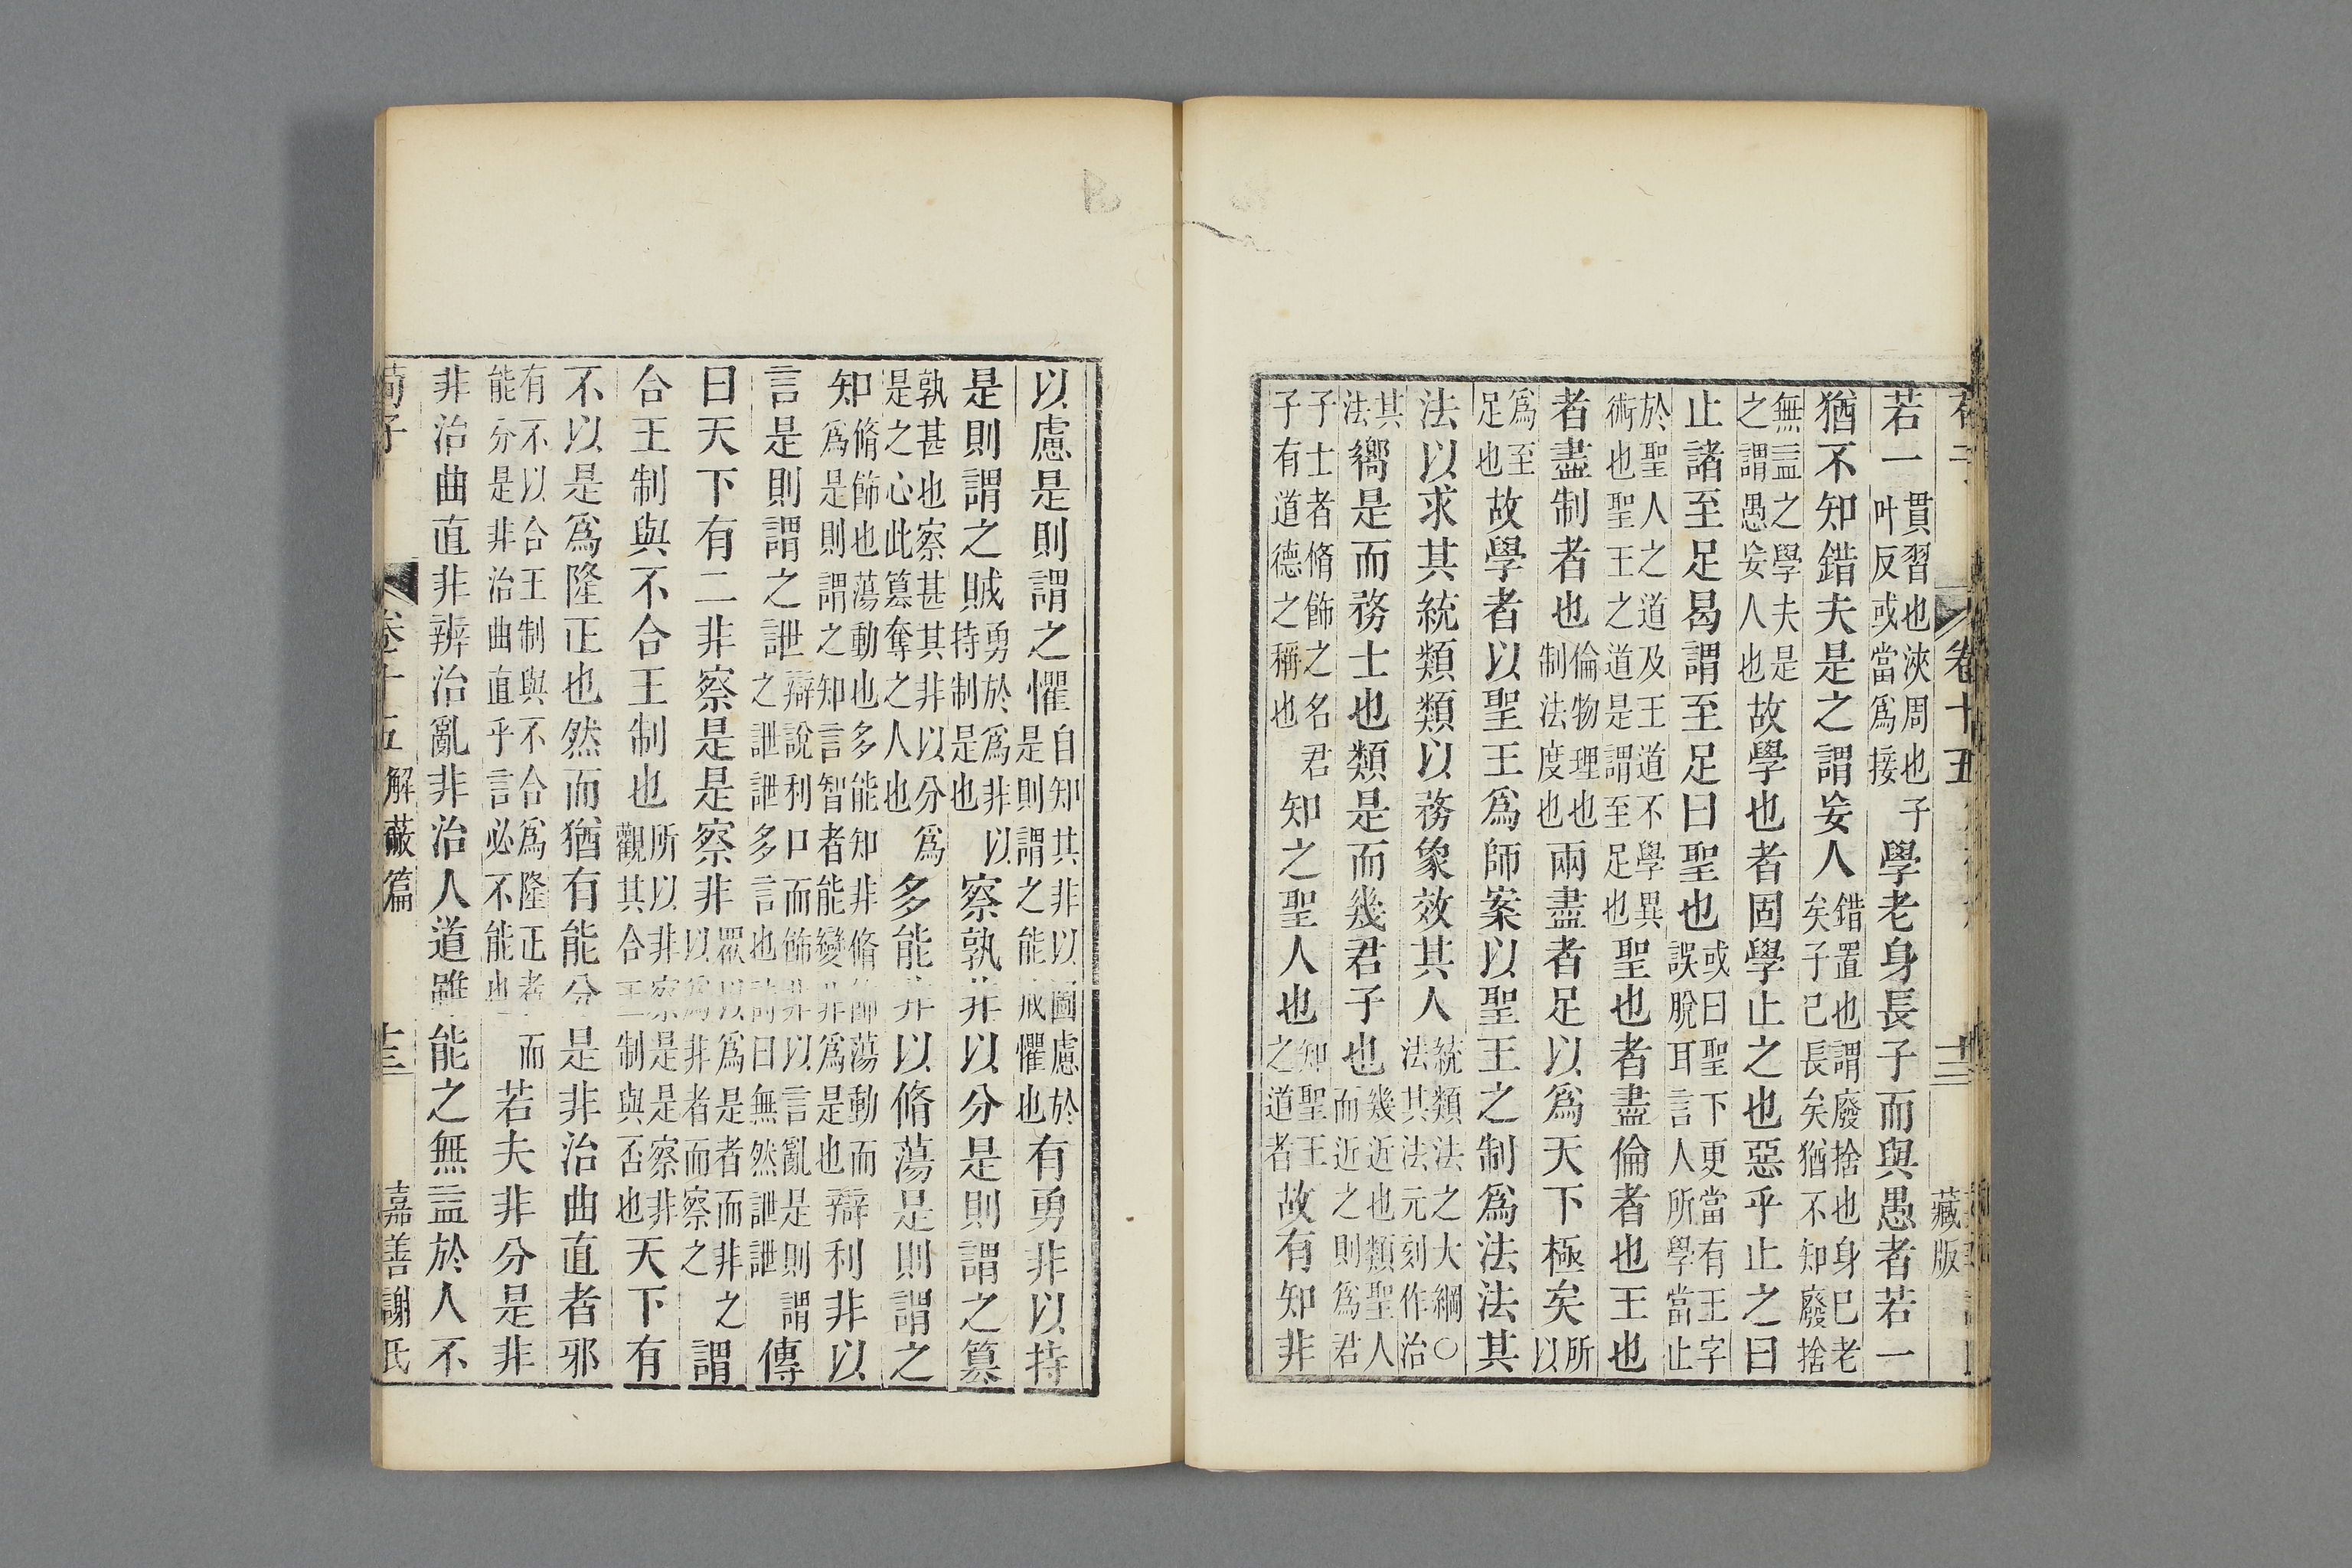 卷十五 十二 藏版
若一貫習也浹周也子叶反或當爲接學老身長子而與愚者若一
猶不知錯夫是之謂妄人錯置也謂廢捨也身已老矣子已長矣猶不知廢捨
無益之學夫是之謂愚妄人也故學也者固學止之也惡乎止之曰
止諸至足曷謂至足曰聖也或曰聖下更當有王字誤脫耳言人所學當止
於聖人之道及王道不學異術也聖王之道是謂至足也聖也者盡倫者也王也
者盡制者也倫物理也制法度也兩盡者足以爲天下極矣所以
爲至足也故學者以聖王爲師案以聖王之制爲法法其
法以求其統類類以務象效其人統類法之大綱○法其法元刻作治
其法嚮是而務士也類是而幾君子也幾近也類聖人而近之則爲君
子士者脩飾之名君子有道德之稱也知之聖人也知聖王之道者故有知非
以慮是則謂之懼自知其非以圖慮於是則謂之能戒懼也有勇非以持
是則謂之賊勇於爲非以持制是也察孰非以分是則謂之篡
孰甚也察甚其非以分爲是之心此篡奪之人也多能非以脩蕩是則謂之
知脩飾也蕩動也多能知非脩飾蕩動而爲是則謂之知言智者能變非爲是也辯利非以
言是則謂之詍辯說利口而飾非以言亂是則謂之詍詍多言也詩曰無然詍詍傳
曰天下有二非察是是察非眾以爲是者而非之以爲非者而察之謂
合王制與不合王制也所以非察是是察非觀其合王制與否也天下有
不以是爲隆正也然而猶有能分是非治曲直者邪
有不以合王制與不合爲隆正者而能分是非治曲直乎言必不能也若夫非分是非
非治曲直非辨治亂非治人道雖能之無益於人不
荀子 卷十五 解蔽篇 十三 嘉善謝氏